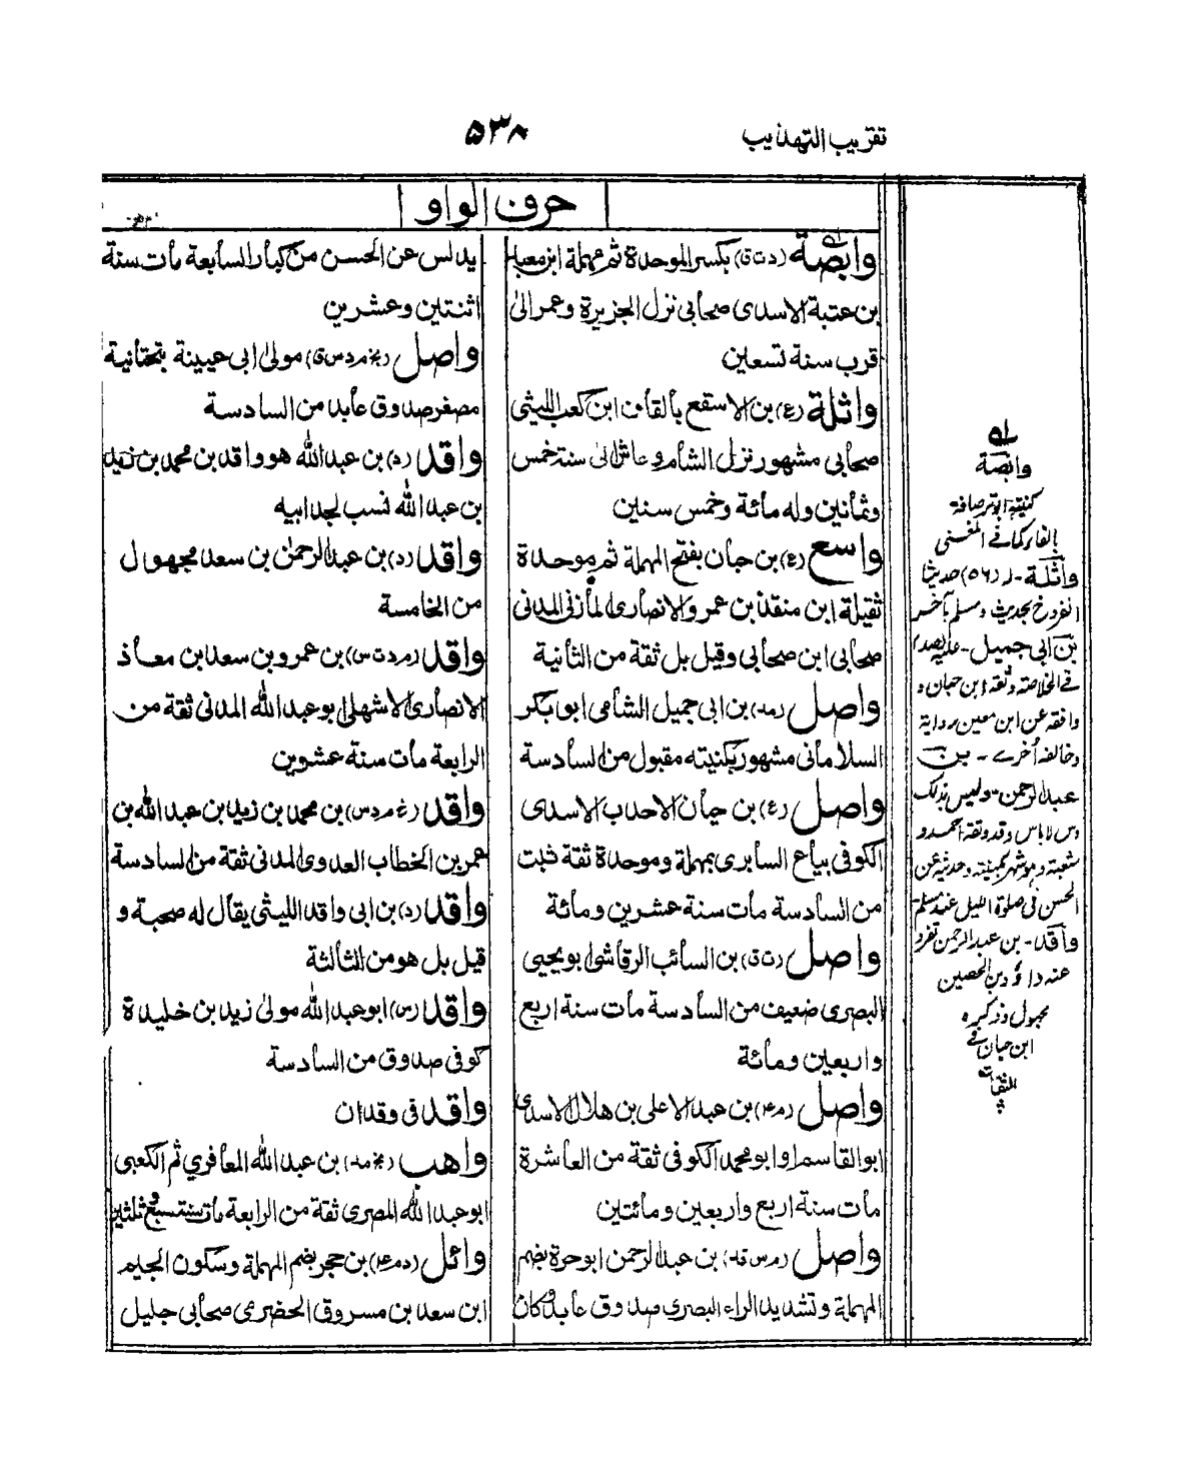 تقريب التهذيب
۵۳۸
حرف الواو
وابصة (د ت ق) بكسر الموحدة ثم مهملة ابن معبد
بن عتبة الاسدى صحابى نزل الجزيرة وعمر الى
قرب سنة تسعين
واثلة (ع) بن الاسقع بالقاف ابن كعب الليثى
صحابى مشهور نزل الشام وعاش الى سنة خمس
وثمانين وله مائة وخمس سنين
واسع (ع) بن حبان بفتح المهملة ثم موحدة
ثقيلة ابن منقذ بن عمرو الانصارى المازنى المدنى
صحابى ابن صحابى وقيل بل ثقة من الثانية
واصل (مد) بن ابى جميل الشامى ابو بكر
السلامانى مشهور بكنيته مقبول من السادسة
واصل (ع) بن حيان الاحدب الاسدى
الكوفى بياع السابرى بمهملة وموحدة ثقة ثبت
من السادسة مات سنة عشرين ومائة
واصل (ت ق) بن السائب الرقاشى ابو يحيى
البصرى ضعيف من السادسة مات سنة اربع
واربعين ومائة
واصل (م ع) بن عبد الاعلى بن هلال الاسدى
ابو القاسم او ابو محمد الكوفى ثقة من العاشرة
مات سنة اربع واربعين ومائتين
واصل (م س قد) بن عبد الرحمن ابو حرة بضم
المهملة وتشديد الراء البصرى صدوق عابد وكان
يدلس عن الحسن من كبار السابعة مات سنة
اثنتين وعشرين
واصل (بخ م د س ق) مولى ابى عيينة بتحتانية
مصغر صدوق عابد من السادسة
واقد (د) بن عبد الله هو واقد بن محمد بن زيد
بن عبد الله نسب لجد ابيه
واقد (د) بن عبد الرحمن بن سعد مجهول
من الخامسة
واقد (م د ت س) بن عمرو بن سعد بن معاذ
الانصارى الاشهلى ابو عبد الله المدنى ثقة من
الرابعة مات سنة عشرين
واقد (خ م د س) بن محمد بن زيد بن عبد الله بن
عمر بن الخطاب العدوى المدنى ثقة من السادسة
واقد (د) بن ابى واقد الليثى يقال له صحبة و
قيل بل هو من الثالثة
واقد (س) ابو عبد الله مولى زيد بن خليدة
كوفى صدوق من السادسة
واقد فى وقدان
واهب (بخ مد) بن عبد الله المعافري ثم الكعبى
ابو عبد الله المصرى ثقة من الرابعة مات سنة سبع وثلثين
وائل (د م ع) بن حجر بضم المهملة وسكون الجيم
ابن سعد بن مسروق الحضرى صحابى جليل
وابصة
كنيته ابو قرصافة
بالفاء كما فى المغنى
واثلة - لـه (۵۶) حديثا
انفرد خ بحديث ومسلم بآخر
بن ابى جميل -
فى الخلاصة وثقه ابن حبان و
وافقه عن ابن معين رواية
وخالفه اخرى - بن
عبد الرحمن - وليس بذلك
وس لا باس وقد وثقه احمد و
شعبة وهو شهر بكنيته وحديثه عن
الحسن فى صلوة الليل عند مسلم
واقد - بن عبد الرحمن تفرد
عنه داؤد بن الحصين
مجهول وذكره
ابن حبان فى
الثقات